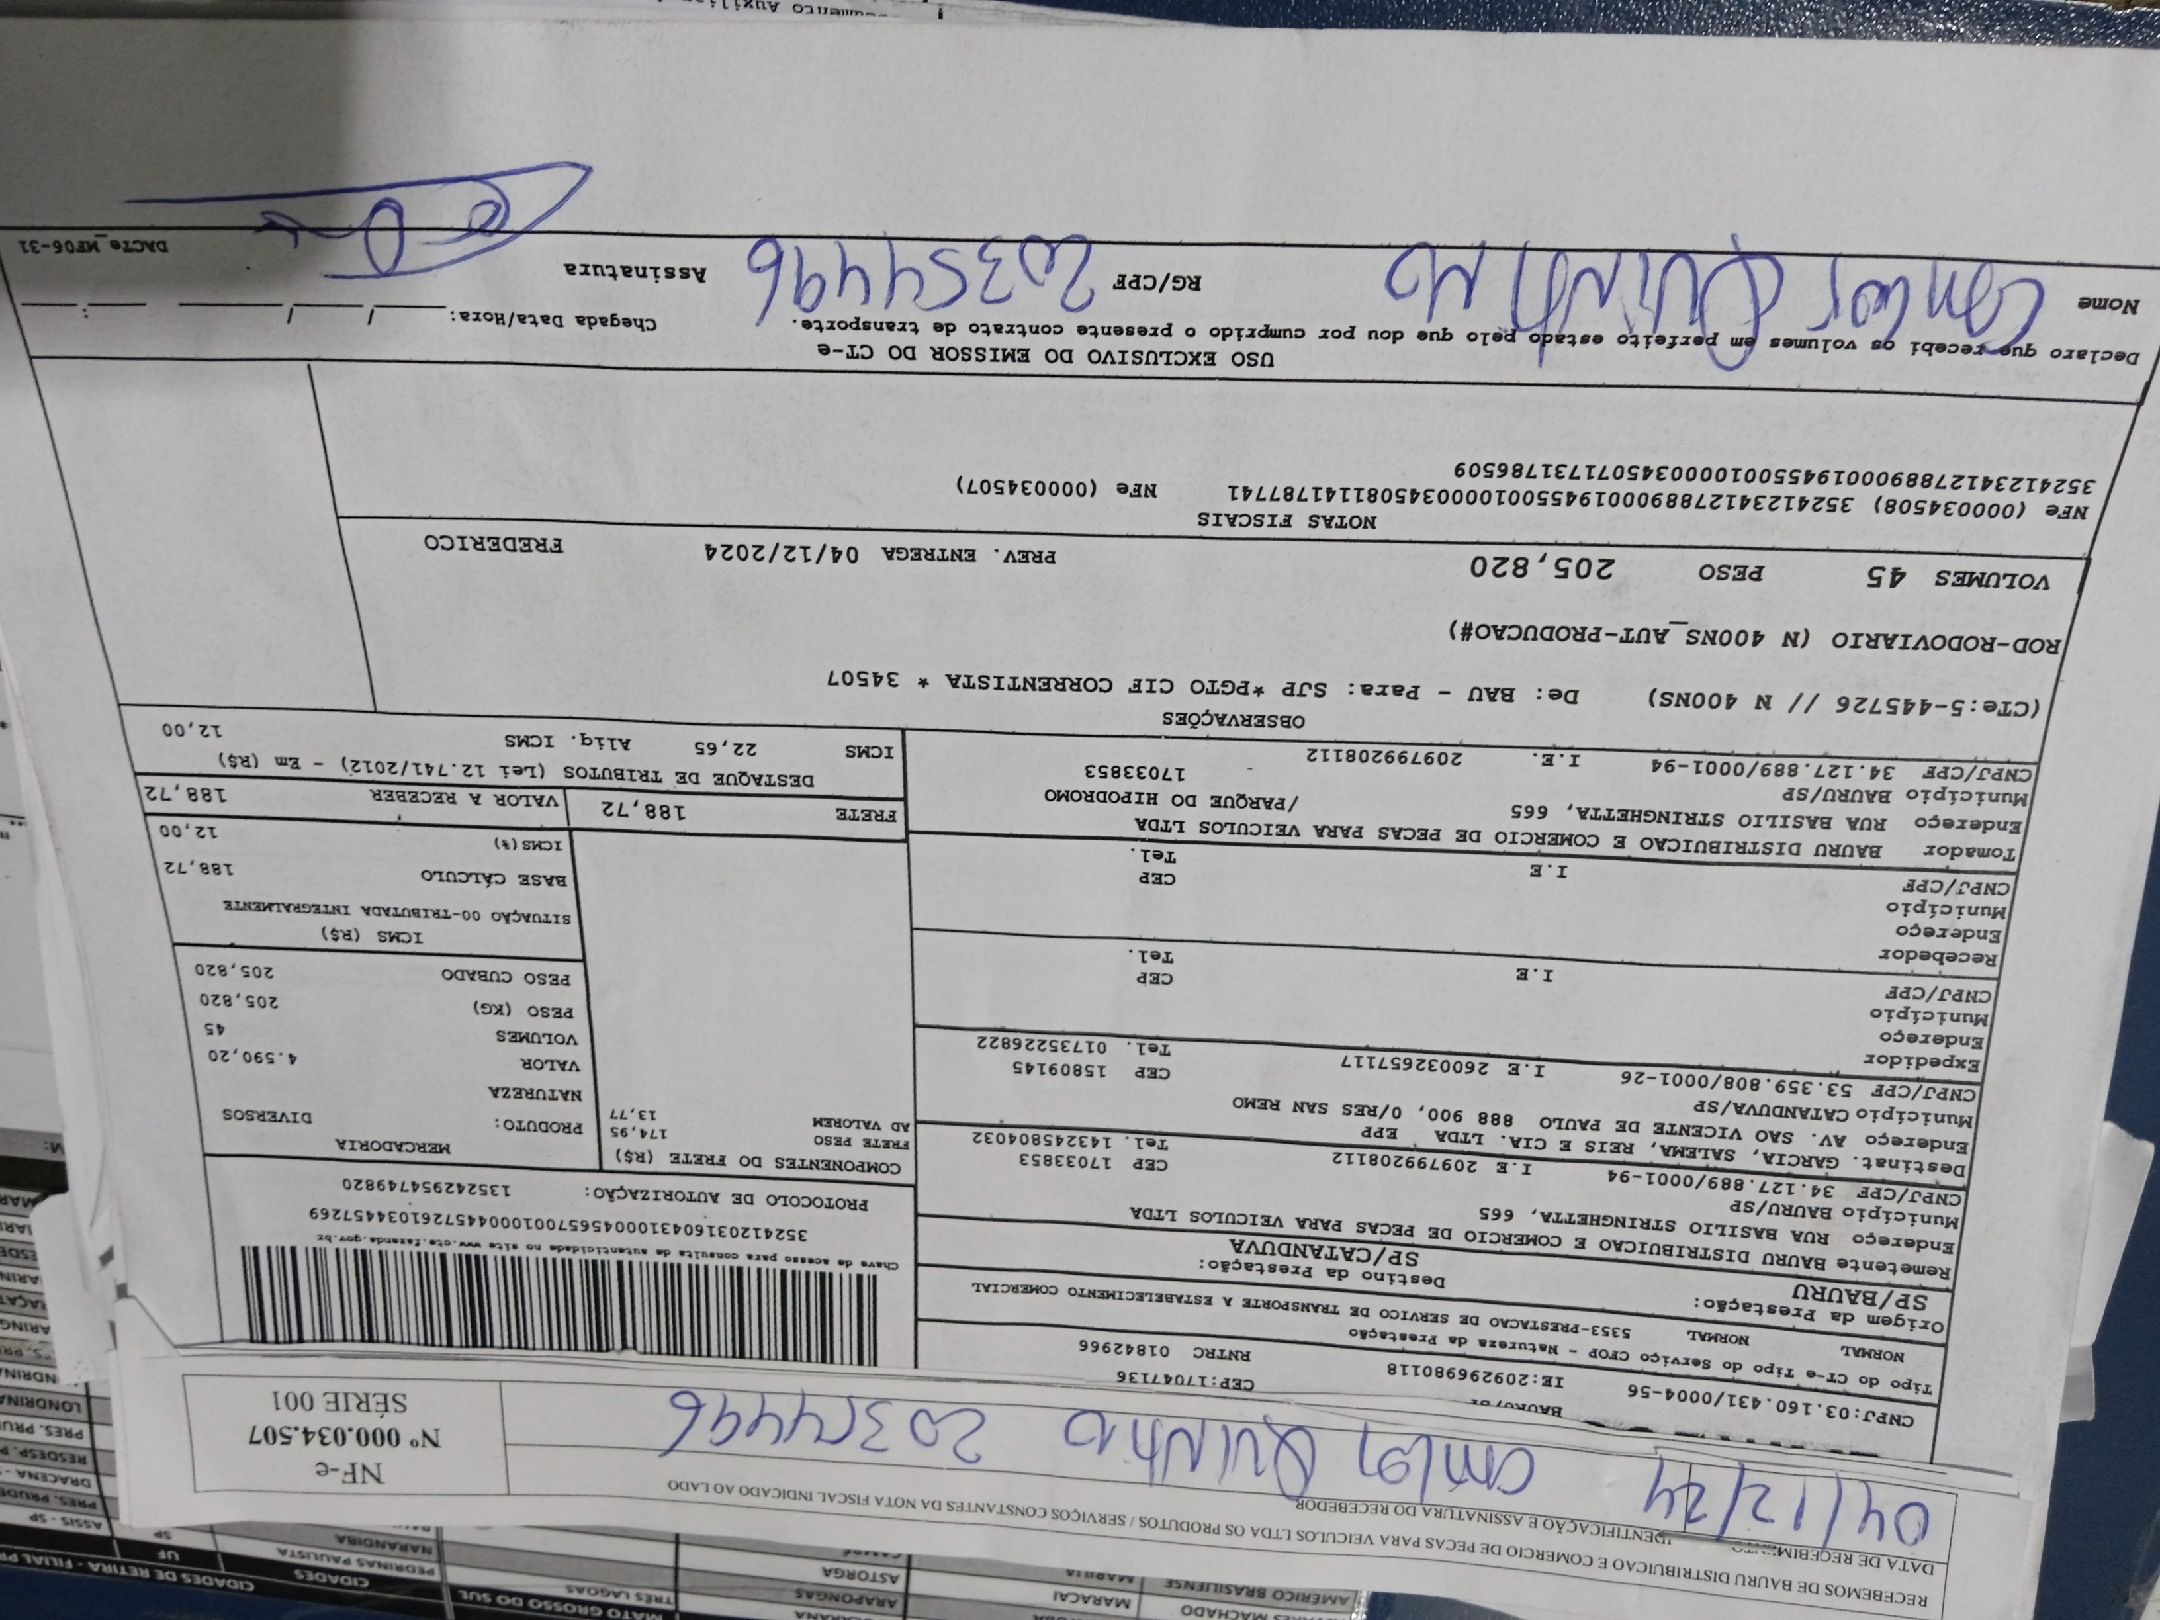 RECEBEMOS DE BAURU DISTRIBUICAO E COMERCIO DE PECAS PARA VEICULOS LTDA OS PRODUTOS / SERVIÇOS CONSTANTES DA NOTA FISCAL INDICADO AO LADO
DATA DE RECEBIMENTO
IDENTIFICAÇÃO E ASSINATURA DO RECEBEDOR
04/12/24
20354496
NF-e
Nº 000.034.507
SÉRIE 001
CNPJ:03.160.431/0004-56 IE:209296980118 CEP:17047136
RNTRC 01842966
Tipo do CT-e Tipo do Serviço CFOP - Natureza da Prestação
NORMAL NORMAL 5353-PRESTACAO DE SERVICO DE TRANSPORTE A ESTABELECIMENTO COMERCIAL
Origem da Prestação: Destino da Prestação:
SP/BAURU SP/CATANDUVA
Remetente BAURU DISTRIBUICAO E COMERCIO DE PECAS PARA VEICULOS LTDA
Endereço RUA BASILIO STRINGHETTA, 665
Município BAURU/SP CEP 17033853
CNPJ/CPF 34.127.889/0001-94 I.E 209799208112 Tel. 1432458040​32
Destinat. GARCIA, SALEMA, REIS E CIA. LTDA EPP
Endereço AV. SAO VICENTE DE PAULO 888 900, 0/RES SAN REMO
Município CATANDUVA/SP CEP 15809145
CNPJ/CPF 53.359.808/0001-26 I.E 260032657117 Tel. 01735226822
Expedidor
Endereço
Município CEP
CNPJ/CPF I.E Tel.
Recebedor
Endereço
Município CEP
CNPJ/CPF I.E Tel.
Tomador BAURU DISTRIBUICAO E COMERCIO DE PECAS PARA VEICULOS LTDA
Endereço RUA BASILIO STRINGHETTA, 665 /PARQUE DO HIPODROMO
Município BAURU/SP 17033853
CNPJ/CPF 34.127.889/0001-94 I.E. 209799208112
Chave de acesso para consulta de autenticidade no site www.cte.fazenda.gov.br
35241203160431000456570010004457261034457269
PROTOCOLO DE AUTORIZAÇÃO: 135242954749820
COMPONENTES DO FRETE (R$)
FRETE PESO 174,95
AD VALOREM 13,77
MERCADORIA
PRODUTO: DIVERSOS
NATUREZA
VALOR 4.590,20
VOLUMES 45
PESO (KG) 205,820
PESO CUBADO 205,820
ICMS (R$)
SITUAÇÃO 00-TRIBUTADA INTEGRALMENTE
BASE CÁLCULO 188,72
ICMS(%) 12,00
FRETE 188,72 VALOR A RECEBER 188,72
DESTAQUE DE TRIBUTOS (Lei 12.741/2012) - Em (R$)
ICMS 22,65 Aliq. ICMS 12,00
OBSERVAÇÕES
(CTe:5-445726 // N 400NS) De: BAU - Para: SJP *PGTO CIF CORRENTISTA * 34507
ROD-RODOVIARIO (N 400NS_AUT-PRODUCAO#)
VOLUMES 45 PESO 205,820 PREV. ENTREGA 04/12/2024 FREDERICO
NOTAS FISCAIS
NFe (000034508) 35241234127889000194550010000345081141787741 NFe (000034507)
35241234127889000194550010000345071731786509
USO EXCLUSIVO DO EMISSOR DO CT-e
Declaro que recebi os volumes em perfeito estado pelo que dou por cumprido o presente contrato de transporte.
Chegada Data/Hora: __/__/____ __:__
Nome RG/CPF 20354496 Assinatura
DACTe_MF06-31